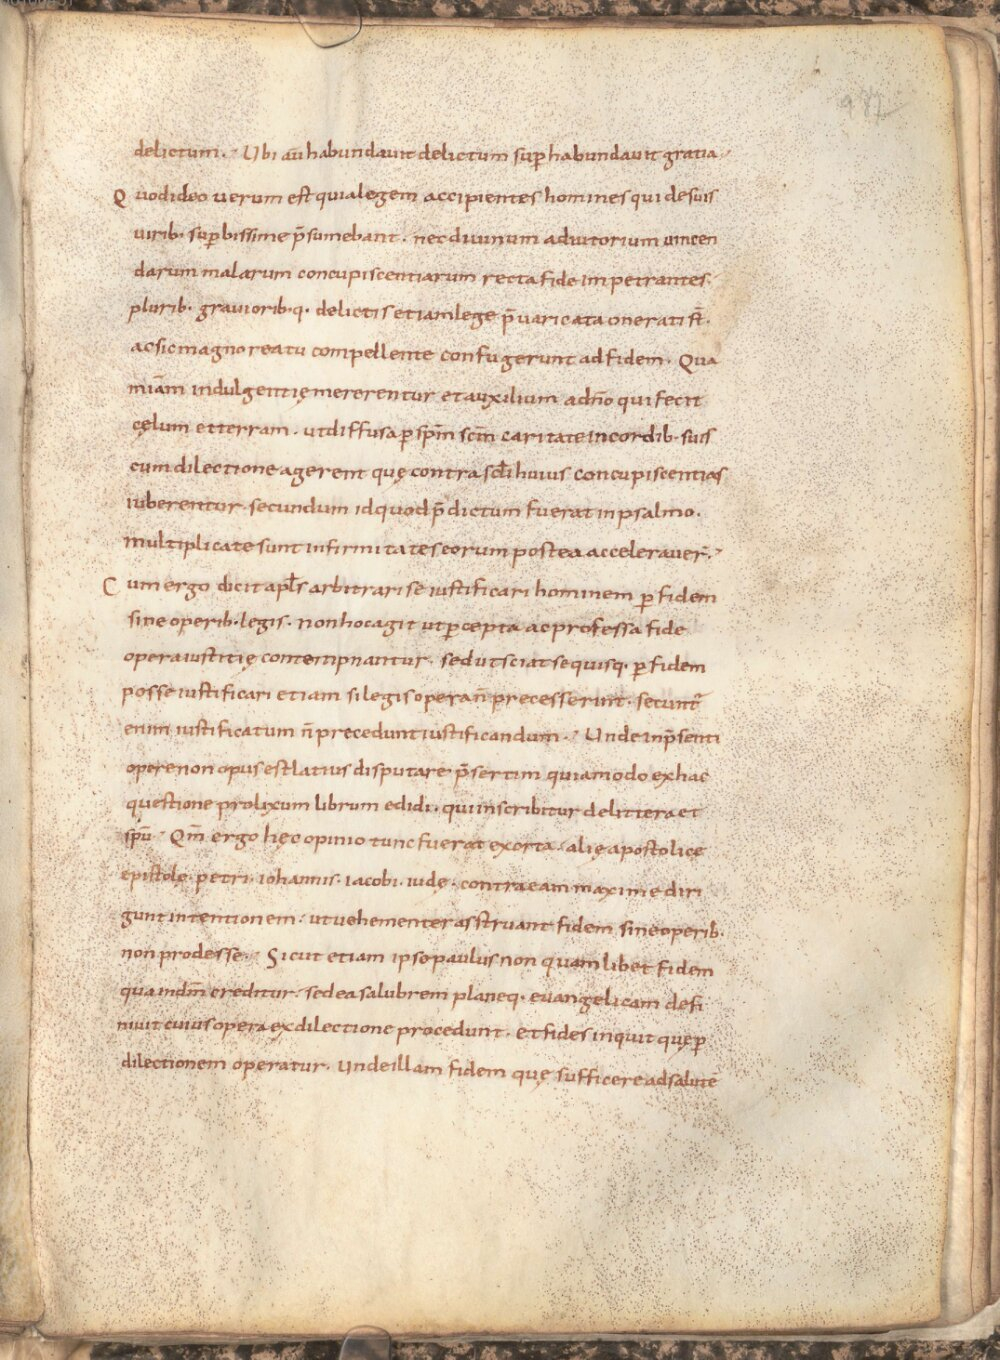 delictum. Ubi aū habundauit delictum sup̄habundauit gratia.
Quod ideo uerum est quia legem accipientes homines qui de suis
uirib. sup̄bissime p̄sumebant. nec diuinum adiutorium uincen
darum malarum concupiscentiarum recta fide impetrantes.
plurib. grauiorib.q. delictis etiam lege p̄uaricata onerati st̄.
ac sic magno reatu compellente confugerunt ad fidem. Qua
m̄iam indulgentię mererentur et auxilium a dn̄o qui fecit
cęlum et terram. ut diffusa p̄ sp̄m sc̄m caritate in cordib. suis
cum dilectione agerent quę contra sc̄li huius concupiscentias
iuberentur. secundum id quod p̄dictum fuerat in psalmo.
multiplicate sunt infirmitates eorum postea accelerauer̄.
Cum ergo dicit apl̄s arbitrari se iustificari hominem p̄ fidem
sine operib. legis. non hoc agit ut p̄cepta ac professa fide
opera iustitię contempnantur. sed ut sciat se quisq. p̄ fidem
posse iustificari etiam si legis opera n̄ precesserunt. secunt̄
enim iustificatum n̄ precedunt iustificandum. Unde in p̄senti
opere non opus est latius disputare p̄sertim quia modo ex hac
questione prolixum librum edidi. qui inscribitur de littera et
sp̄u. Qm̄ ergo hęc opinio tunc fuerat exorta. alię apostolicę
epistolę. petri. iohannis. iacobi. iudę. contra eam maxime diri
gunt intentionem. ut uehementer asstruant fidem sine operib.
non prodesse. Sicut etiam ipse paulus non quamlibet fidem
qua in dm̄ creditur. sed ea salubrem planeq. euangelicam defi
niuit cuius opera ex dilectione procedunt. et fides inquit quę p̄
dilectionem operatur. Unde illam fidem quę sufficere ad salutē